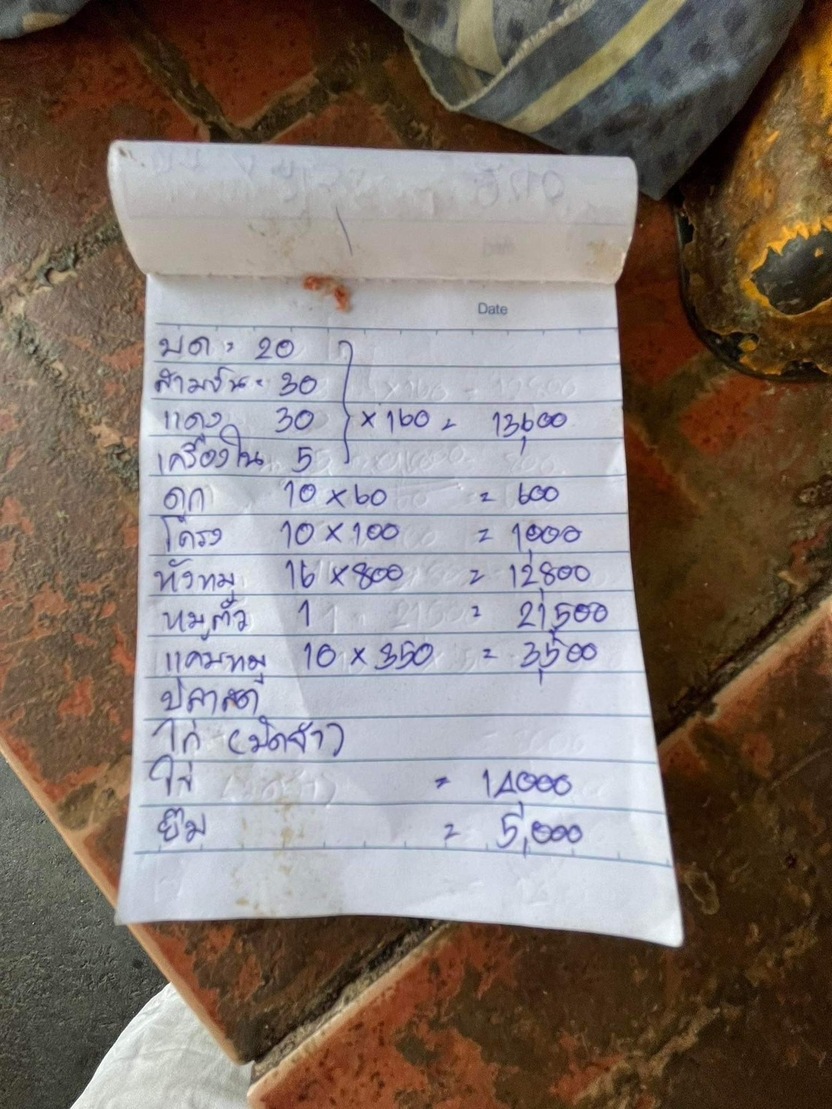 Date
บด = 20
สามชั้น = 30
แดง 30 } × 160 = 13,600
เครื่องใน 5
ดูก 10 × 60 = 600
โครง 10 × 100 = 1,000
หัวหมู 16 × 800 = 12,800
หมูตัว 1 = 21,500
แคบหมู 10 × 350 = 3,500
ปลาสด
ไก่ (มัดจำ)
ไข่ = 14,000
ยืม = 5,000